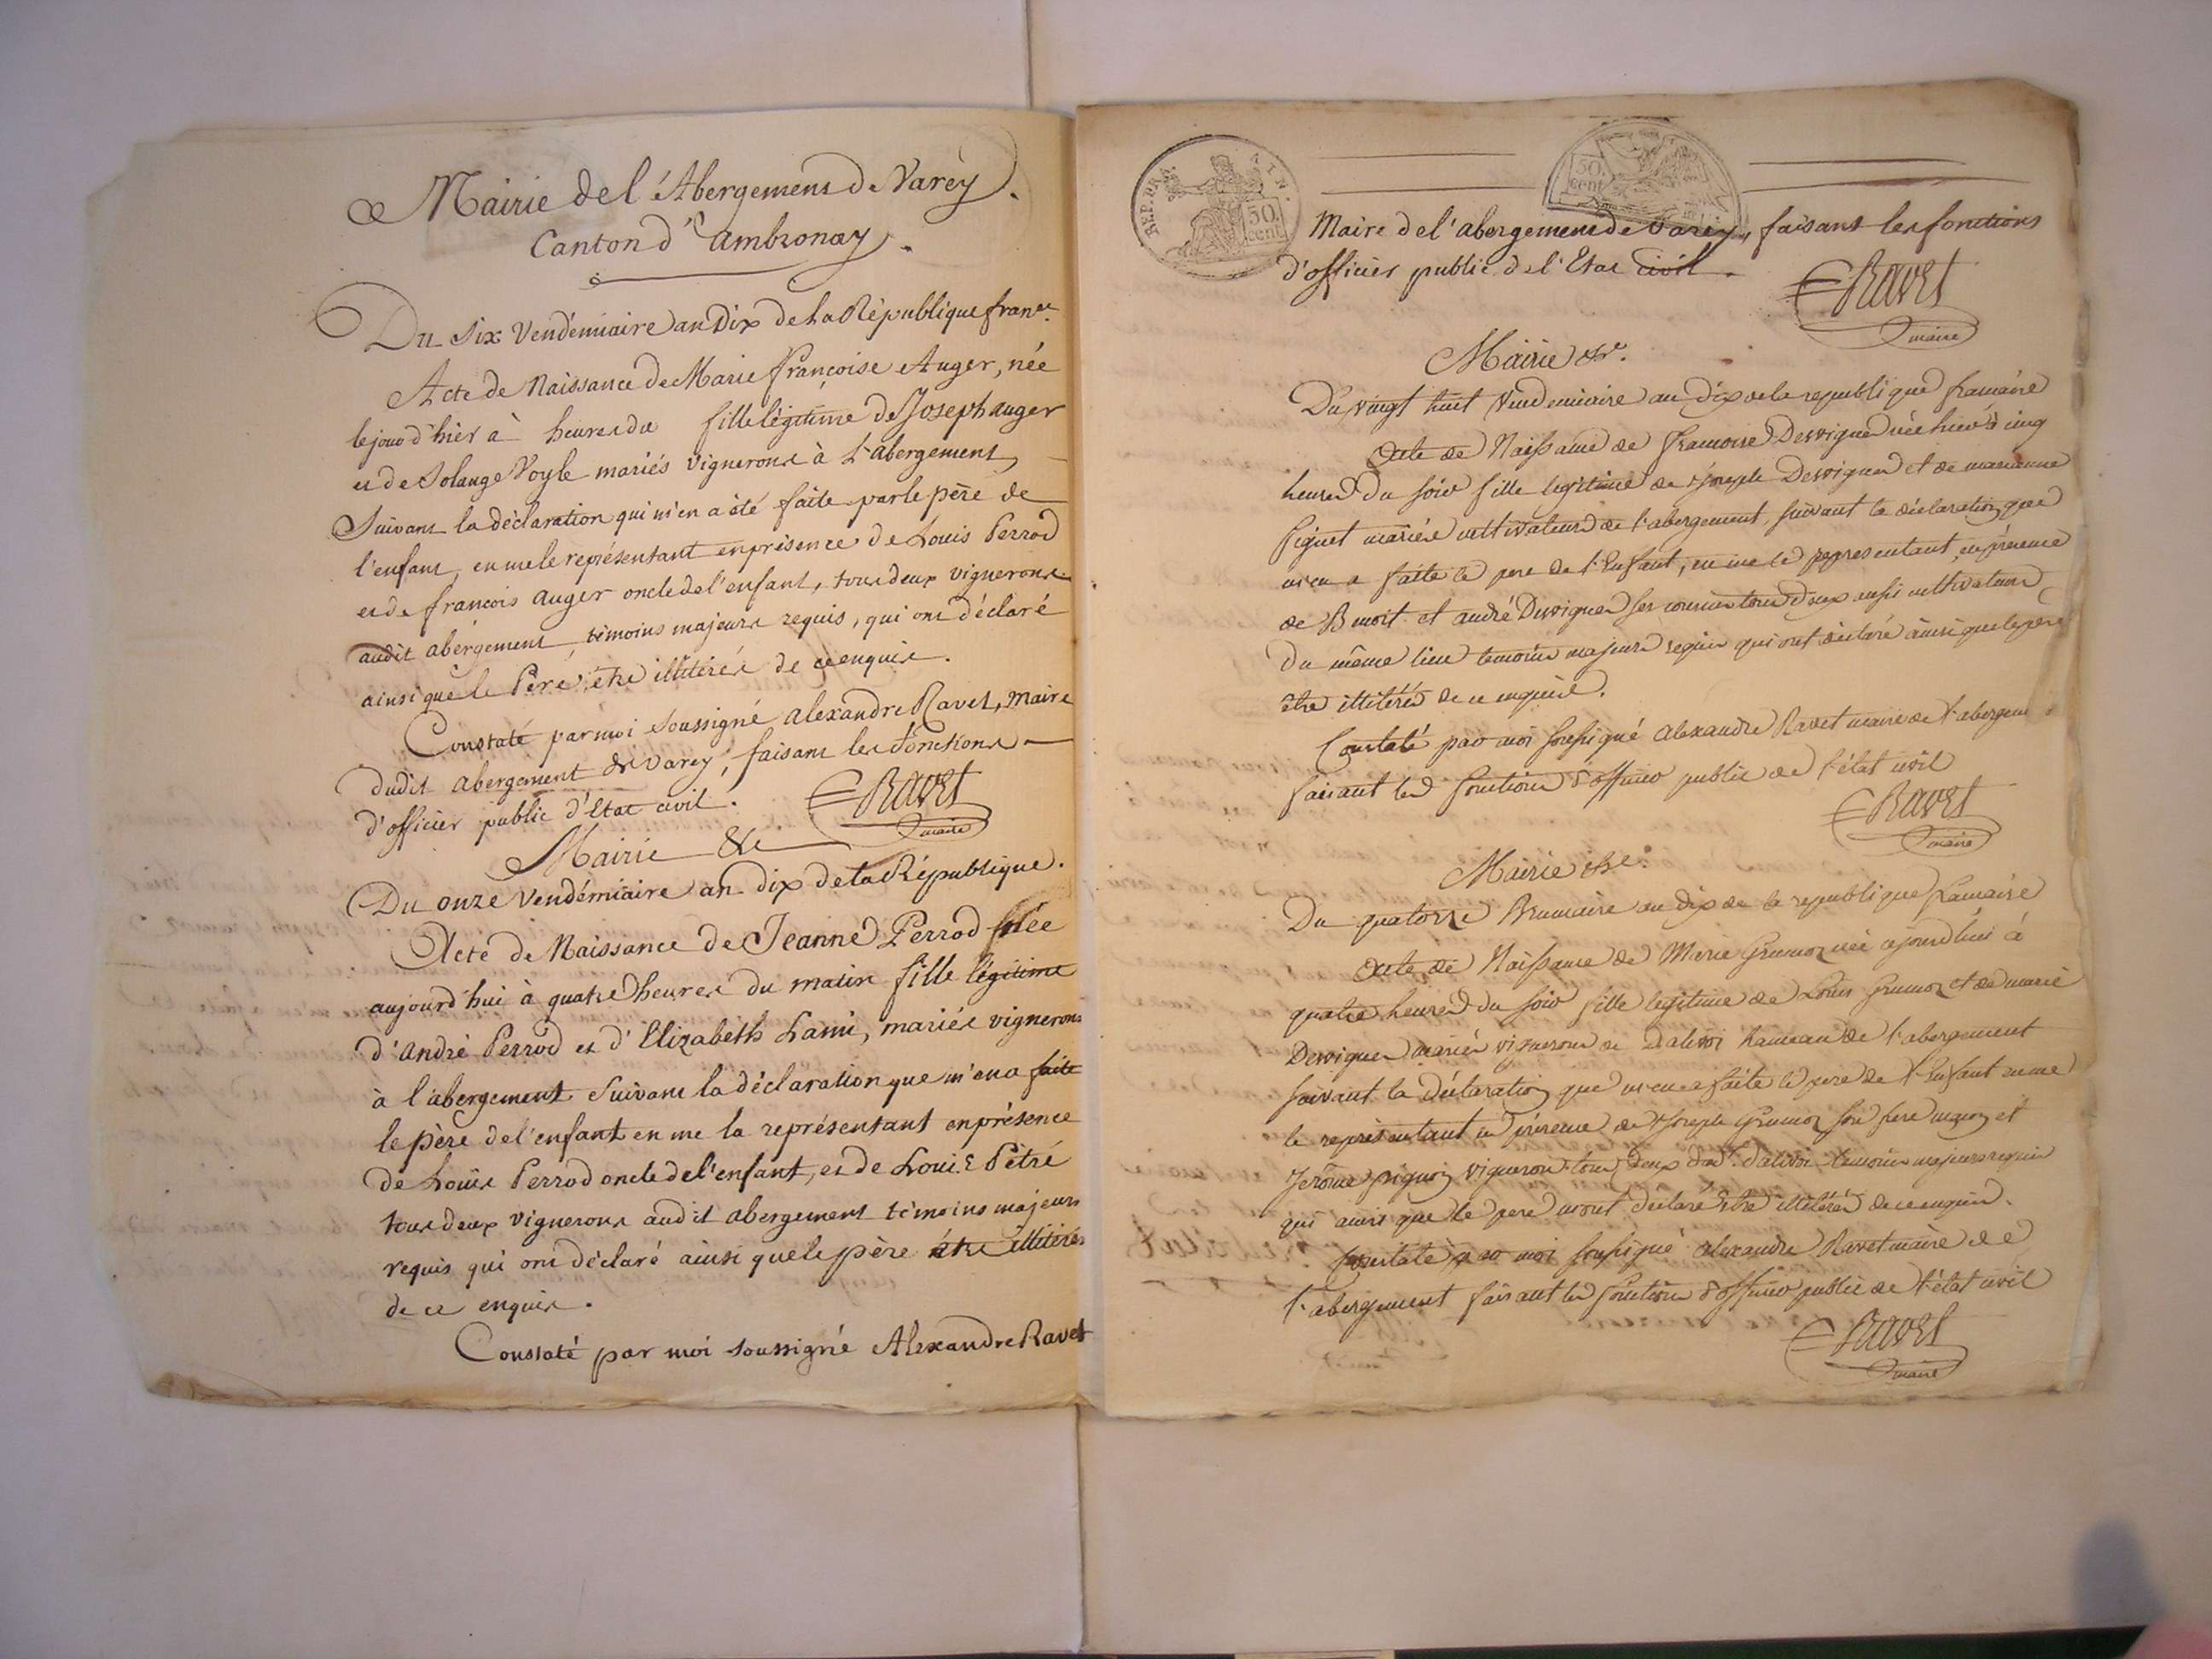 Mairie de l'Abergement de Varey.
Canton d'Ambronay.
Du Six Vendémiaire an Dix de la République franse.
Acte de Naissance de Marie françoise Auger, née
le jour d'hier à heures du fille légitime de Joseph auger
et de Solange Voyle mariés vignerons à L'abergement
Suivant la déclaration qui m'en a été faite par le père de
l'enfant, en me le représentant en présence de Louis Perrod
et de francois auger oncle de l'enfant, tous deux vignerons
audit abergement, témoins majeurs requis, qui ont déclaré
ainsi que le Père être illitérés de ce enquis.
Constaté par moi soussigné alexandre Ravet, maire
dudit abergement de varey, faisant les fonctions
d'officier public d'Etat civil.
Ravet
maire
Mairie &c
Du onze Vendémiaire an dix de la République.
Acte de Naissance de Jeanne Perrod Née
aujourd'hui à quatre heures du matin fille légitime
d'andré Perrod et d'Elizabeth Lami, mariés vignerons
à l'abergement Suivant la déclaration que m'en a faite
le père de l'enfant en me la représentant en présence
de Louis Perrod oncle de l'enfant, et de Louis Pétré
tous deux vignerons audit abergement témoins majeurs
requis qui ont déclaré ainsi que le père être illitérés
de ce enquis.
Constaté par moi soussigné Alexandre Ravet
REP. FRA. AIN.
50. cent
50. cent
Maire de l'abergement de Varey, faisant les fonctions
d'officier public de l'Etat civil.
Ravet
maire
Mairie &c.
Du vingt huit Vendemiaire an dix de la republique francaise
Acte de Naissance de francoise Dervigne née hier à cinq
heures du soir fille legitime de joseph Dervigne et de marianne
piquet mariés cultivateurs de l'abergement suivant la déclaration que
m'en a faite le pere de l'Enfant, en me le representant en présence
de Benoit et andré Dervigne ses cousins tous deux aussi cultivateurs
du même lieu temoins majeurs requis qui ont déclaré ainsi que le père
être illitérés de ce enquis.
Constaté par moi soussigné alexandre Ravet maire de l'abergement
faisant les fonctions d'officier public de l'état civil
Ravet
maire
Mairie &c.
Du quatorze Brumaire an dix de la republique francaise
Acte de Naissance de Marie Grumoz née ajourd'hui à
quatre heures du soir fille legitime de Louis Grumoz et de marie
Dervigne mariés vignerons de Dalivoi hameau de l'abergement
suivant la déclaration que m'en a faite le pere de l'Enfant en me
le representant en présence de joseph Grumoz son frere et
Jerôme pignoz vigneron tous deux dud. Dalivoi temoins majeurs requis
qui ainsi que le pere m'ont déclaré être illitérés de ce enquis.
Constaté par moi soussigné alexandre Ravet maire de
l'abergement faisant les fonctions d'officier public de l'état civil
Ravet
maire